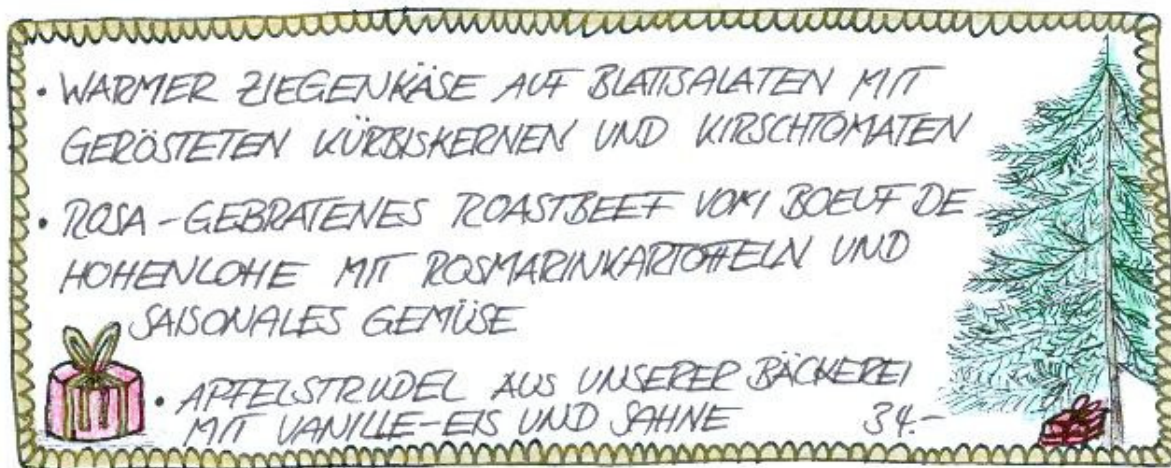 • WARMER ZIEGENKÄSE AUF BLATTSALATEN MIT
GERÖSTETEN KÜRBISKERNEN UND KIRSCHTOMATEN
• ROSA-GEBRATENES ROASTBEEF VOM BOEUF DE
HOHENLOHE MIT ROSMARINKARTOFFELN UND
SAISONALES GEMÜSE
• APFELSTRUDEL AUS UNSERER BÄCKEREI
MIT VANILLE-EIS UND SAHNE 34.-